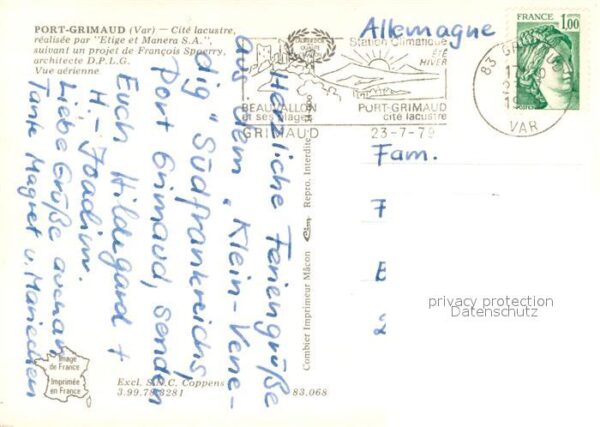 PORT-GRIMAUD (Var) — Cité lacustre,
réalisée par "Etige et Manera S.A.",
suivant un projet de François Spoerry,
architecte D.P.L.G.
Vue aérienne
Station Climatique
ÉTÉ
HIVER
BEAUVALLON
et ses plages
PORT-GRIMAUD
cité lacustre
GRIMAUD 23-7-79
83 GRIMAUD
VAR
FRANCE
1,00
Allemagne
Fam.
F
E
2
Herzliche Feriengrüße
aus dem „Klein-Vene-
dig" Südfrankreichs,
Port Grimaud, senden
Euch Hildegard +
H.-Joachim.
Liebe Grüße auch an
Tante Magret u. Mariechen
Combier Imprimeur Mâcon
Repro. Interdite
Image
de France
Imprimée
en France
Excl. S.N.C. Coppens
3.99.78.3281
83.068
privacy protection
Datenschutz